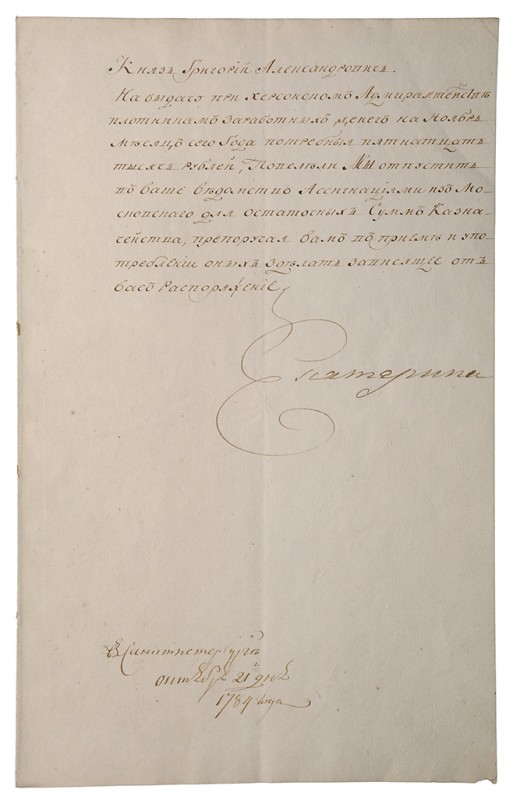 Князь Григорій Александровичь.
На выдачу при херсонскомъ Адмиралтействѣ
плотникамъ заработныхъ денегъ на Ноябрь
мѣсяцъ сего Года потребныя пятнатцать
тысячь рублей, Повелѣли Мы отпустить
въ ваше вѣдомство Ассигнаціями изъ Мо-
сковскаго для остаточныхъ Суммъ Казна-
чейства, препоручая вамъ въ приемѣ и упо-
требленіи оныхъ здѣлать зависящее отъ
васъ распоряженіе.
Екатерина
въ Санктпетербургѣ
октября 21 дня
1784 года